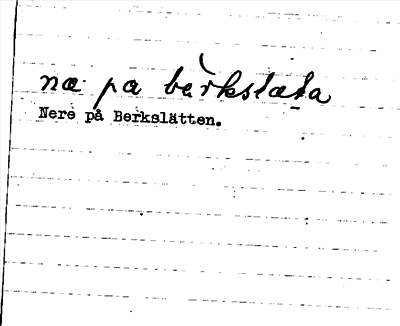 næ pa bèrkslæta
Nere på Berkslätten.